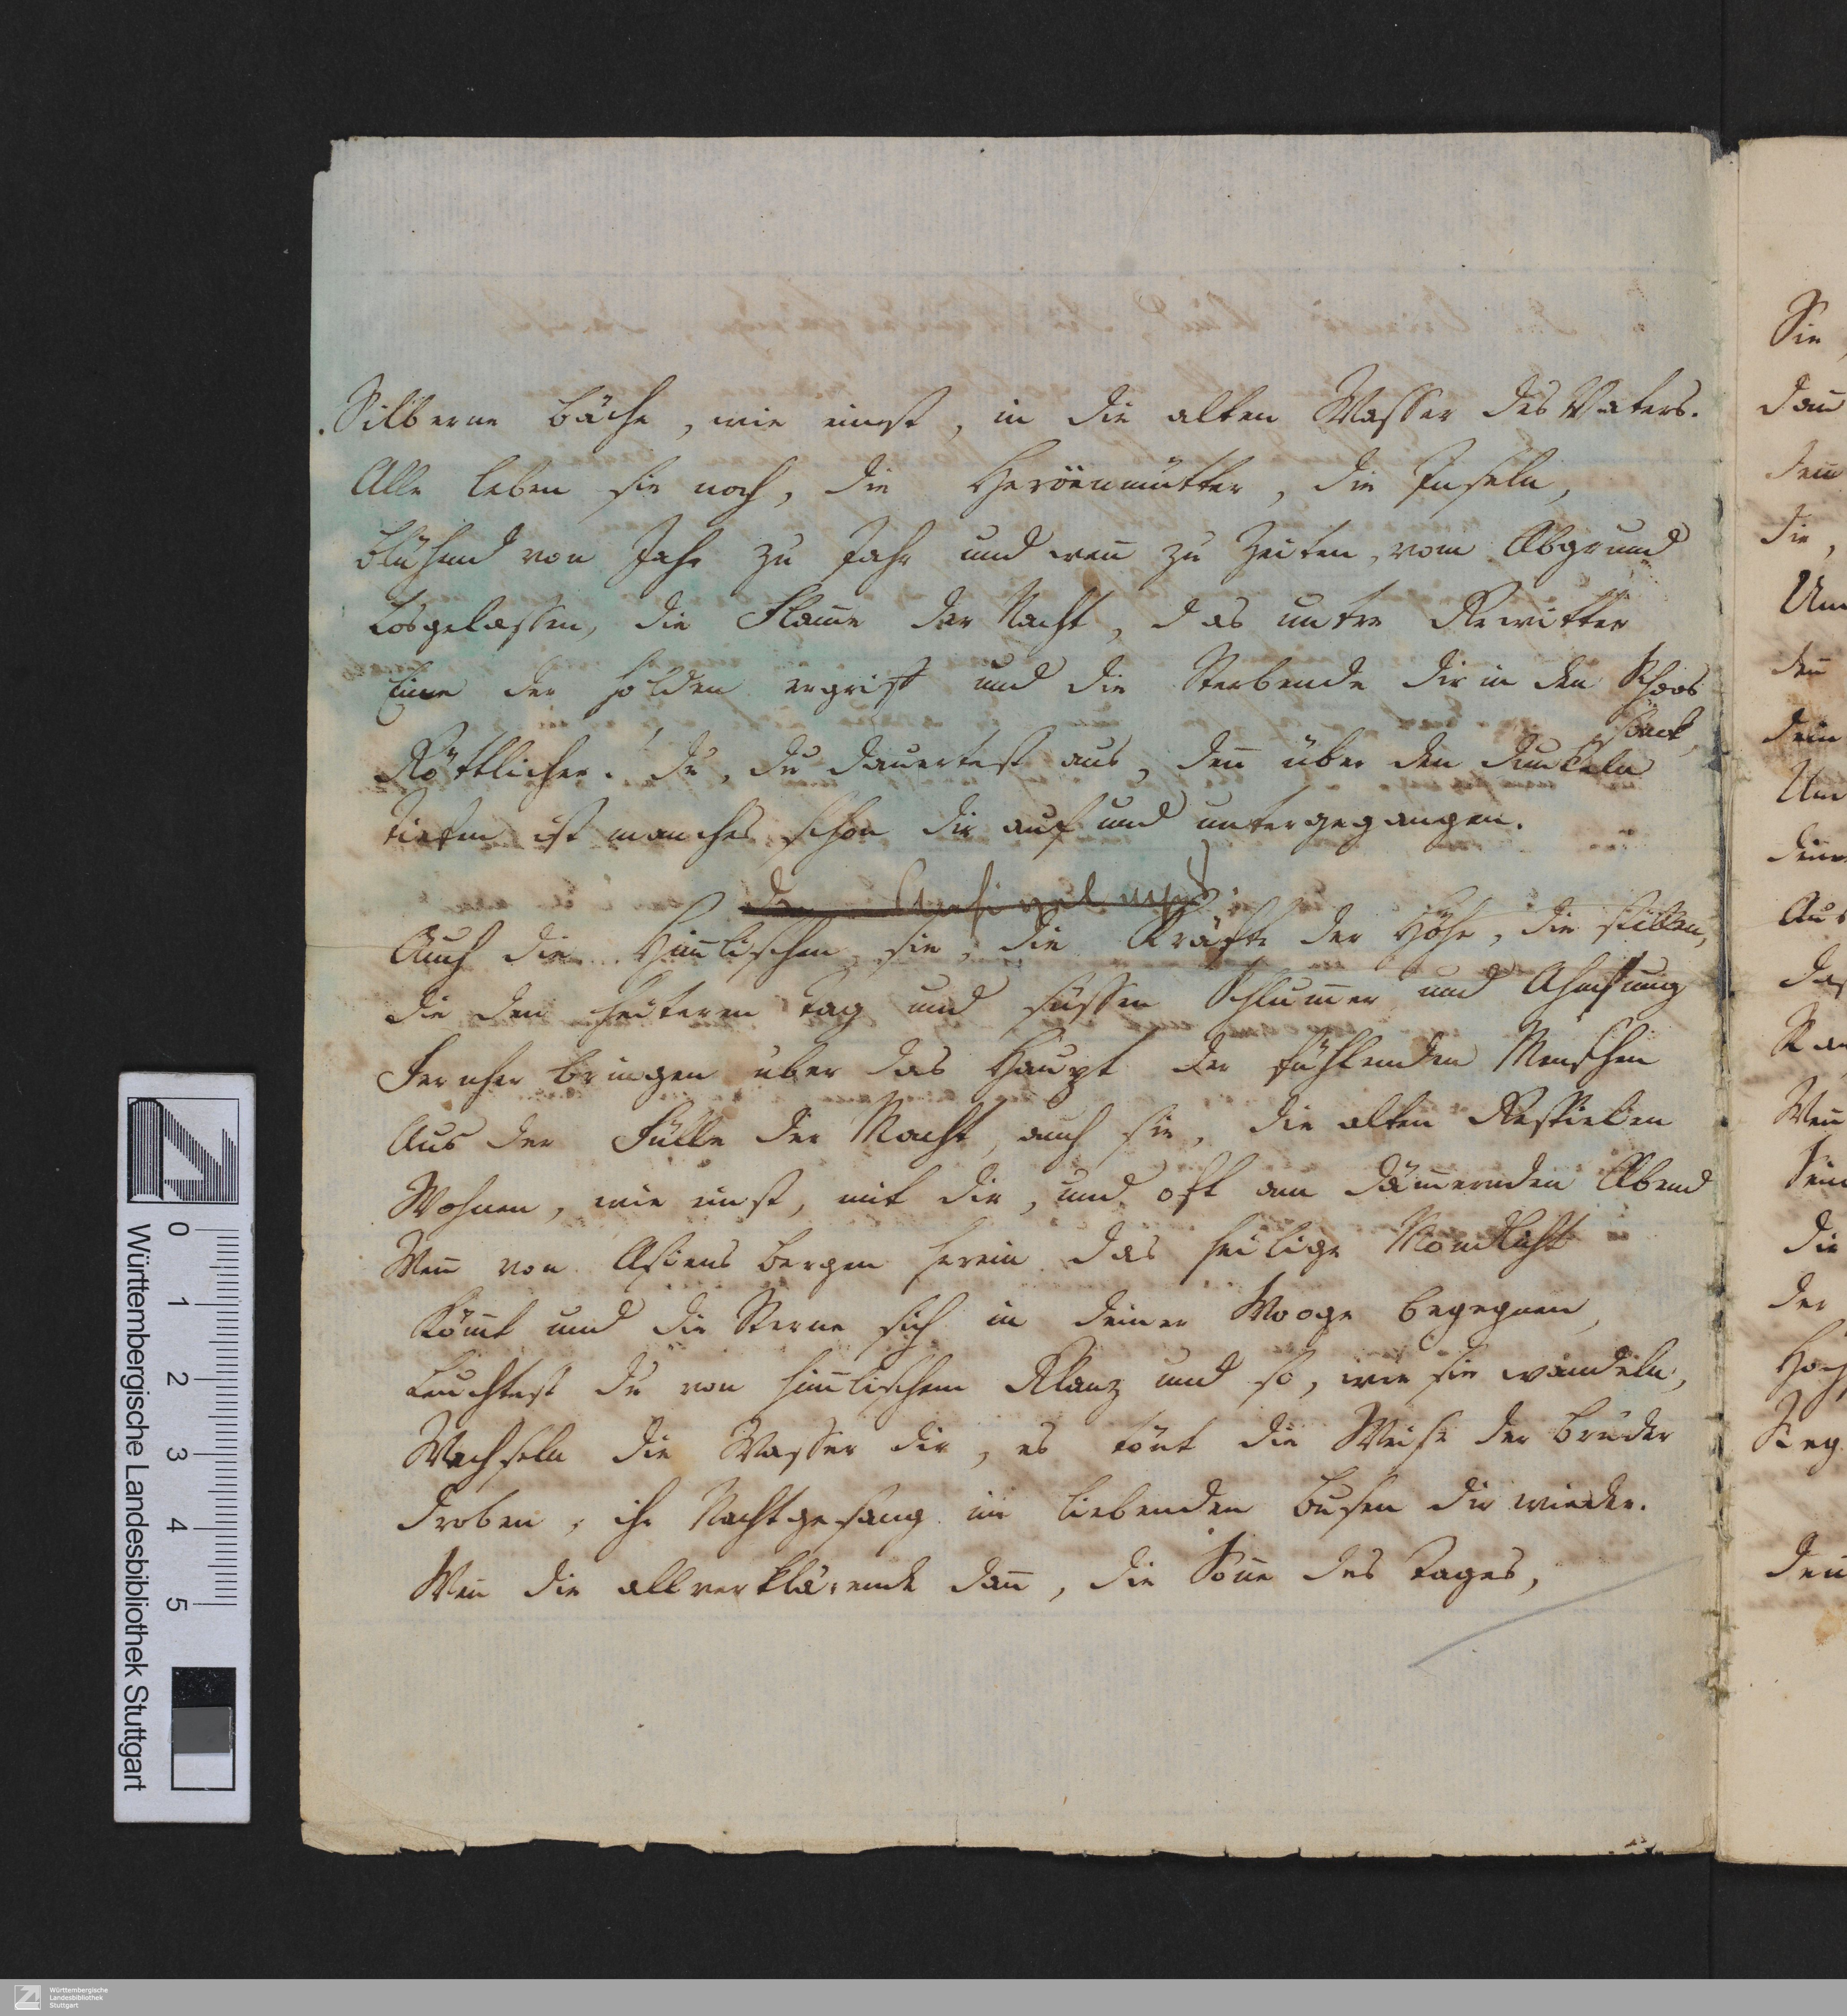 Silberne Bäche, wie einst, in die alten Wasser des Vaters.
Alle leben sie noch, die Heroënmütter, die Inseln,
Blühend von Jahr zu Jahr und weñ zu Zeiten, vom Abgrund
Losgelassen, die Flam̃e der Nacht, das untre Gewitter
Eine der holden ergriff und die Sterbende dir in den Schoos
sank,
Göttlicher! du, du dauertest aus, deñ über den dunkeln
Tiefen ist manches schon dir auf und untergegangen.
Auch die Him̃lischen, sie, die Kräfte der Höhe, die stillen,
Die den heiteren Tag und süssen Schlum̃er und Ahnung
Fernher bringen über das Haupt der fühlenden Menschen
Aus der Fülle der Macht, auch sie, die alten Gespielen
Wohnen, wie einst, mit dir, und oft am däm̃ernden Abend
Weñ von Asiens Bergen herein das heilige Mondlicht
Köm̃t und die Sterne sich in deiner Wooge begegnen,
Leuchtest du von him̃lischem Glanz und so, wie sie wandeln,
Wechseln die Wasser dir, es tönt die Weise der Brüder
Droben, ihr Nachtgesang im liebenden Busen dir wieder.
Weñ die allverklärende dañ, die Soñe des Tages,
Sie,
Deñ
Die,
Um
Deñ
Dein
Um
Aus
Das
Weñ
Die
Der
Hoch
Württembergische Landesbibliothek Stuttgart
0 1 2 3 4 5
Württembergische
Landesbibliothek
Stuttgart